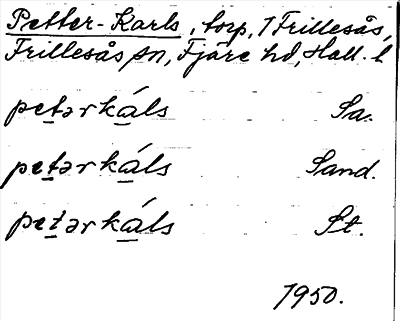 Petter-Karls, torp, 1 Frillesås,
Frillesås sn, Fjäre hd, Hall. l
petərkáls Sa.
petərkáls Sand.
petərkáls St.
1950.